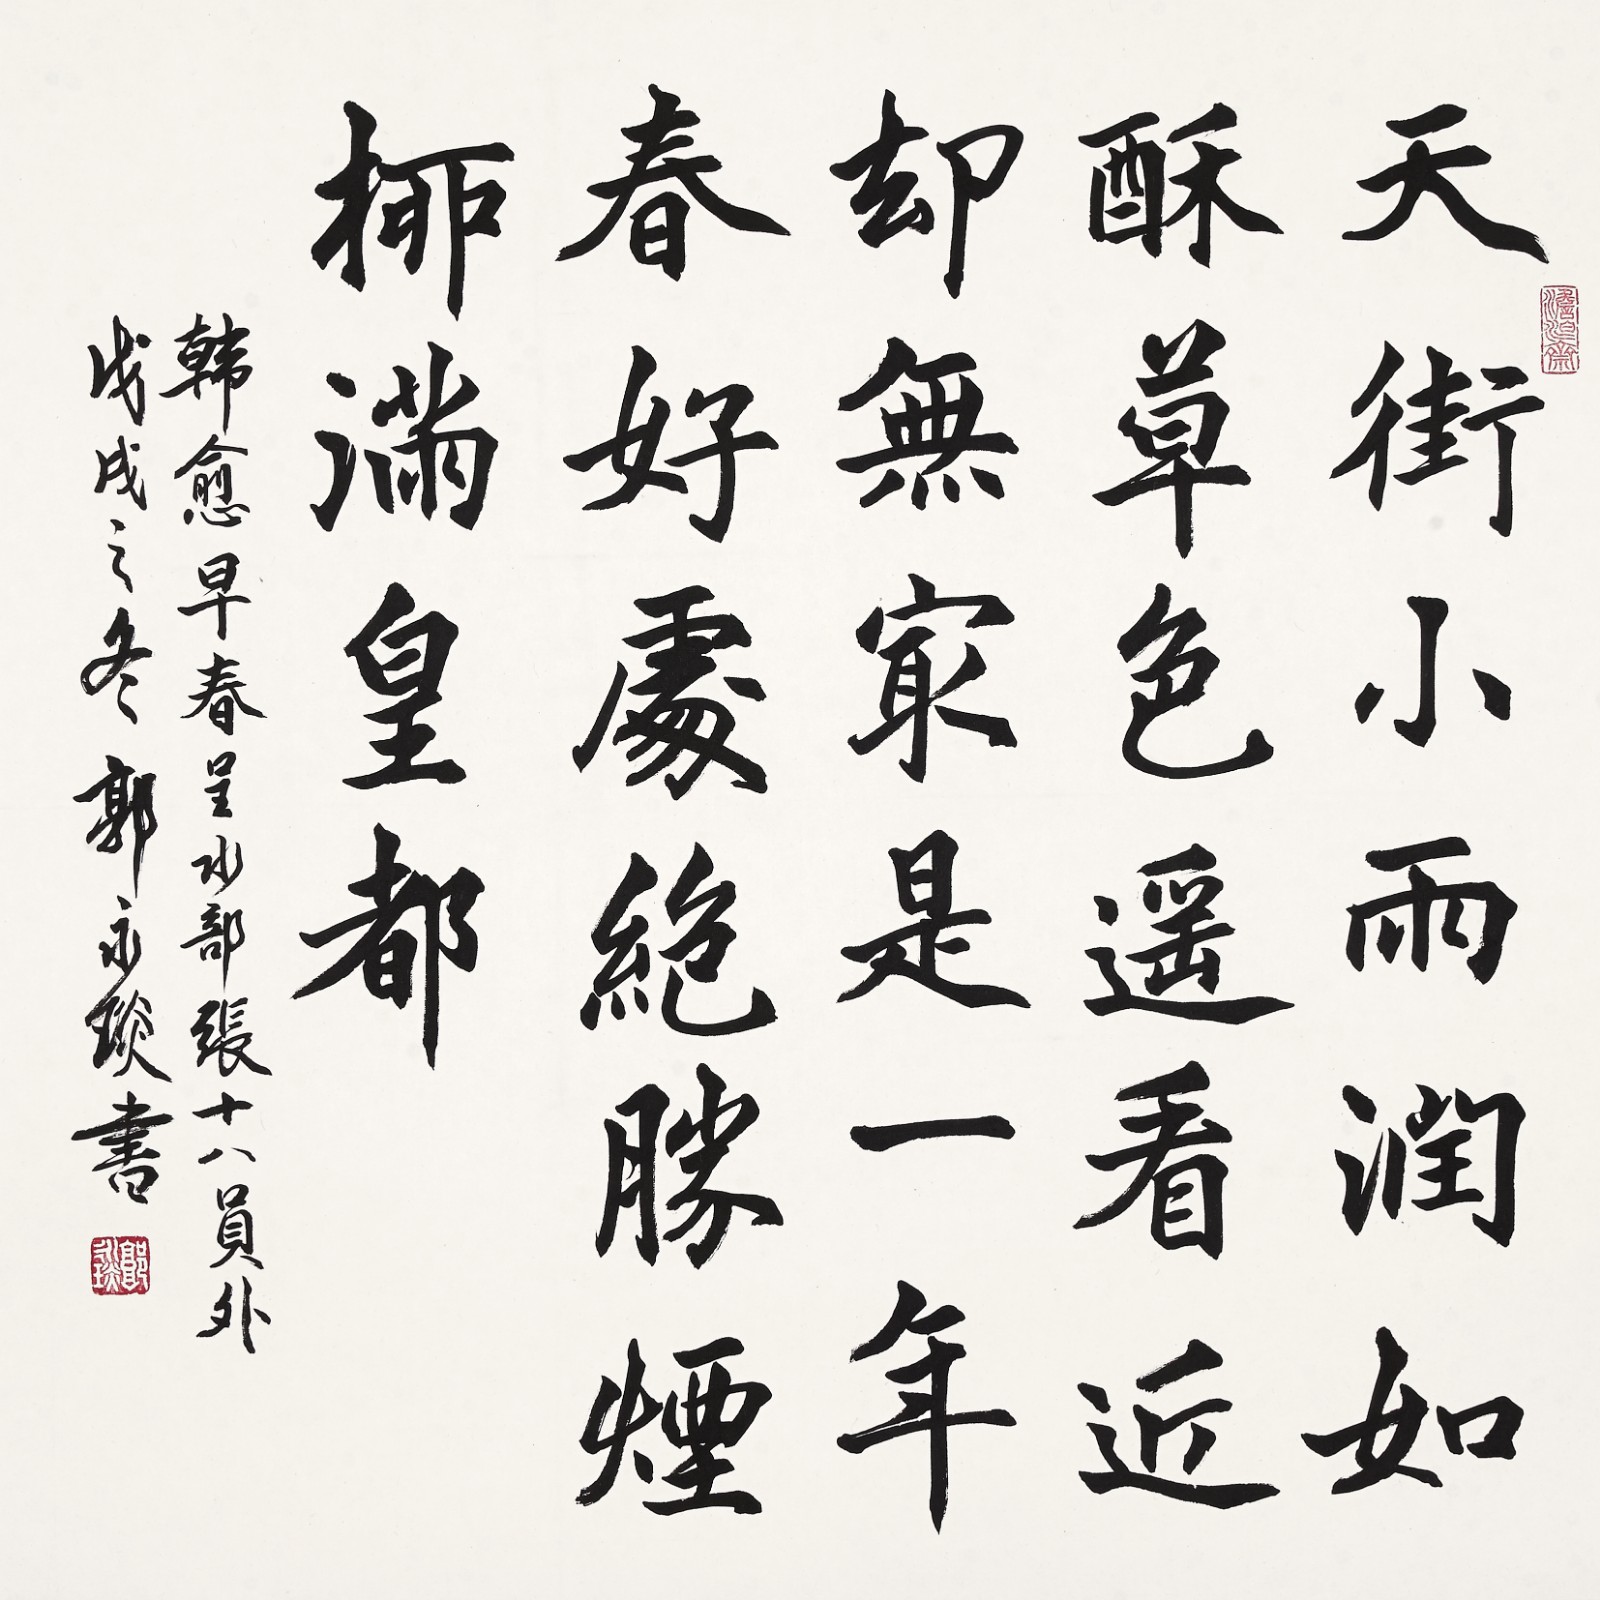 天街小雨潤如
酥草色遥看近
却無冣是一年
春好處絶勝煙
栁滿皇都
韓愈早春呈水部張十八員外
戊戌之冬郭永琰書
郭永琰